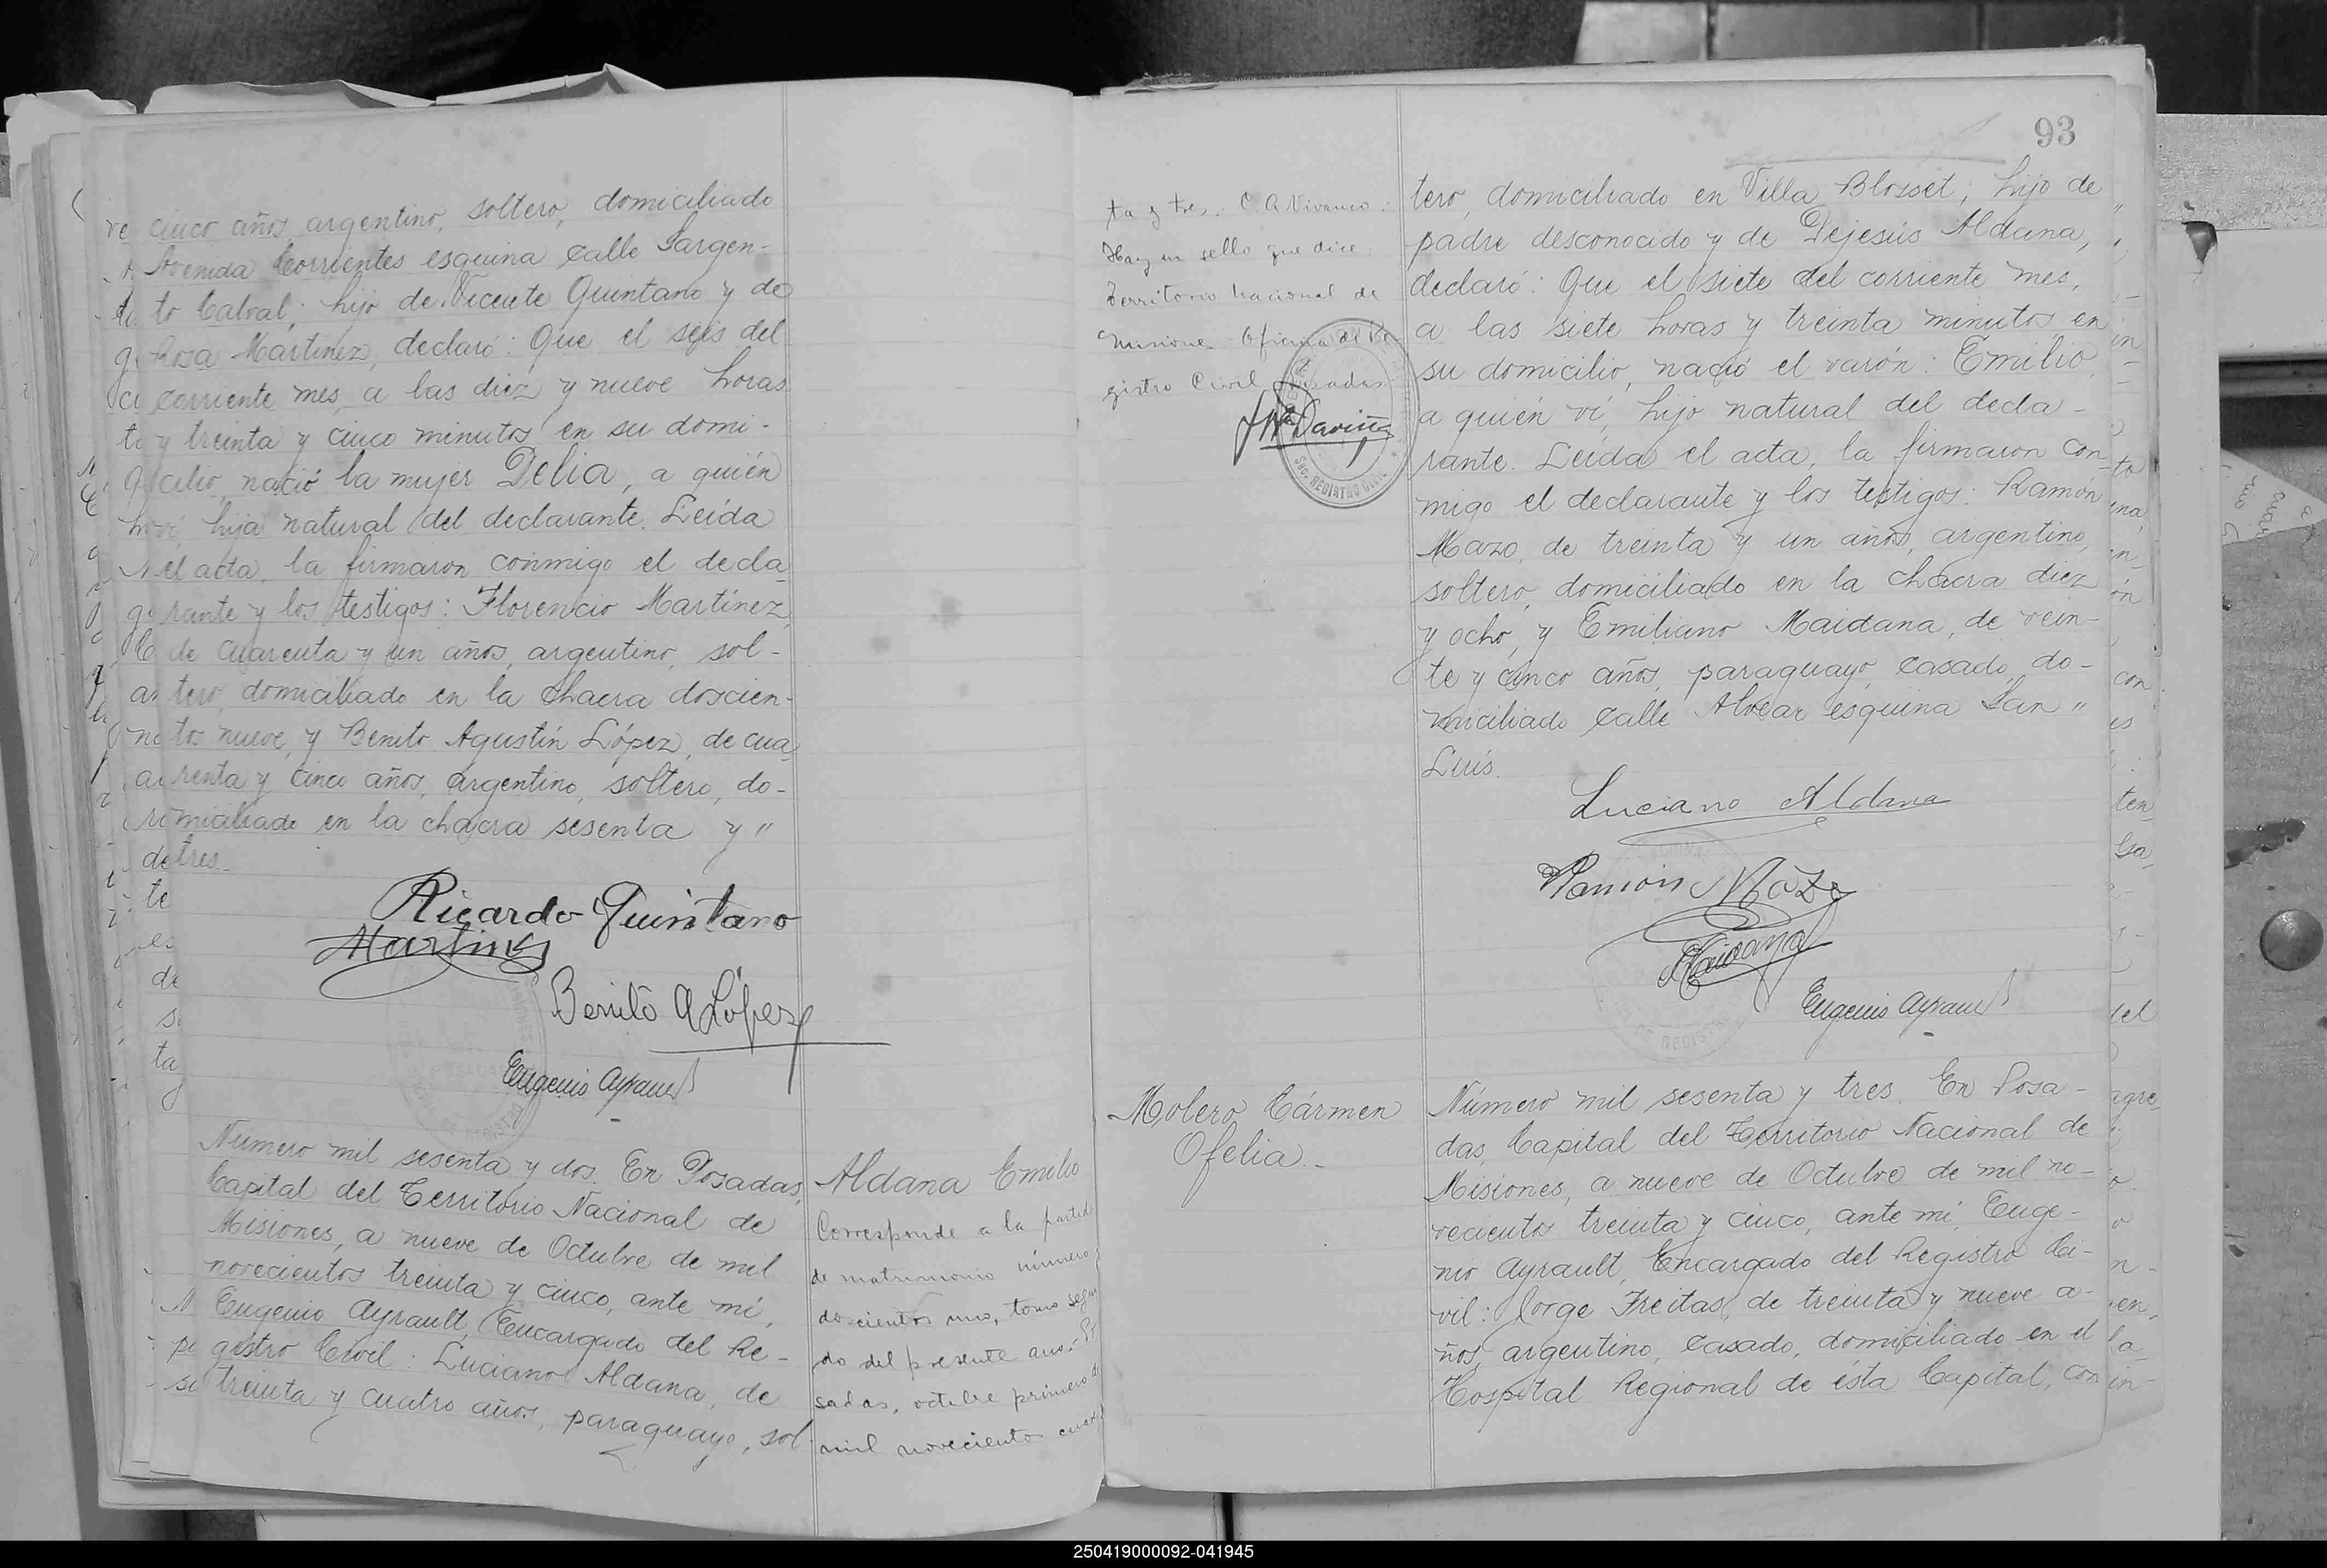 cinco años argentino, soltero, domiciliado
Avenida Corrientes esquina Calle Sargen-
to Cabral; hijo de Vicente Quintano y de
Rosa Martinez, declaró: Que el seis del
corriente mes, a las diez y nueve horas
y treinta y cinco minutos en su domi-
cilio, nació la mujer Delia, a quién
ví, hija natural del declarante. Leída
el acta, la firmaron conmigo el decla-
rante y los testigos: Florencio Martínez,
de cuarenta y un años, argentino, sol-
tero, domiciliado en la chacra doscien-
tos nueve, y Benito Agustín López, de cua-
renta y cinco años, argentino, soltero, do-
miciliado en la chacra sesenta y "
tres.
Ricardo Quintano
Martinez
Benito A López
Eugenio Ayrault
Número mil sesenta y dos. En Posadas,
Capital del Territorio Nacional de
Misiones, a nueve de Octubre de mil
novecientos treinta y cinco, ante mí,
Eugenio Ayrault, Encargado del Re-
gistro Civil: Luciano Aldana, de
treinta y cuatro años, paraguayo, sol
Aldana Emilio
Corresponde a la partida
de matrimonio número
doscientos uno, tomo segun
do del presente año. Po
sadas, octubre primero de
mil novecientos cuaren
93
ta y tres. C. A. Vivanco.
Hay un sello que dice:
Territorio Nacional de
Misiones Oficina de Re
gistro Civil Posadas
REGISTRO CIVIL
tero, domiciliado en Villa Blosset; hijo de
padre desconocido y de Dejesús Aldana,
declaró: Que el siete del corriente mes,
a las siete horas y treinta minutos en
su domicilio, nació el varón: Emilio,
a quién ví, hijo natural del decla-
rante. Leída el acta, la firmaron con-
migo el declarante y los testigos: Ramón
Mazo, de treinta y un años, argentino,
soltero, domiciliado en la chacra diez
y ocho, y Emiliano Maidana, de vein-
te y cinco años, paraguayo, casado, do-
miciliado calle Alvear esquina San "
Luis.
Luciano Aldana
Ramón Mazo
Maidana
Eugenio Ayrault
Molero Cármen
Ofelia.-
Número mil sesenta y tres. En Posa-
das, Capital del Territorio Nacional de
Misiones, a nueve de Octubre de mil no-
vecientos treinta y cinco, ante mí, Euge-
nio Ayrault, Encargado del Registro Ci-
vil: Jorge Freitas, de treinta y nueve a-
ños, argentino, casado, domiciliado en el
Hospital Regional de ésta Capital, con
250419000092-041945